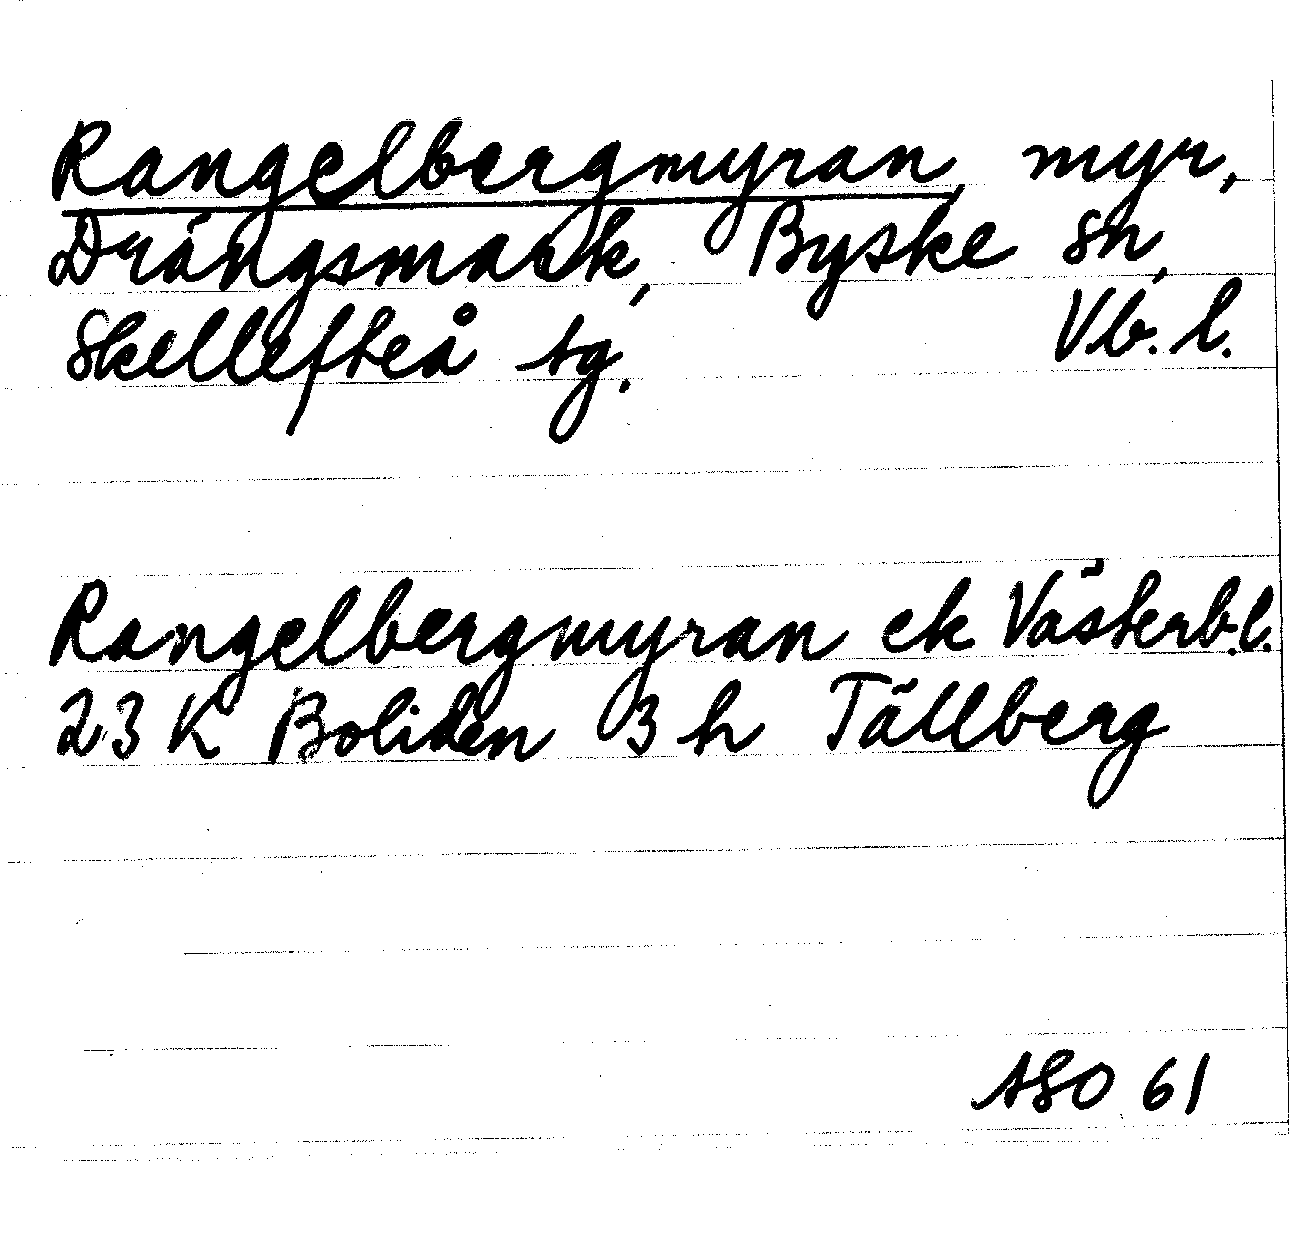 Rangelbergmyran, myr,
Drängsmark, Byske sn,
Skellefteå tg. Vb. l.
Rangelbergmyran ek Västerb.l.
23 K Boliden 3 h Tällberg
ASO 61